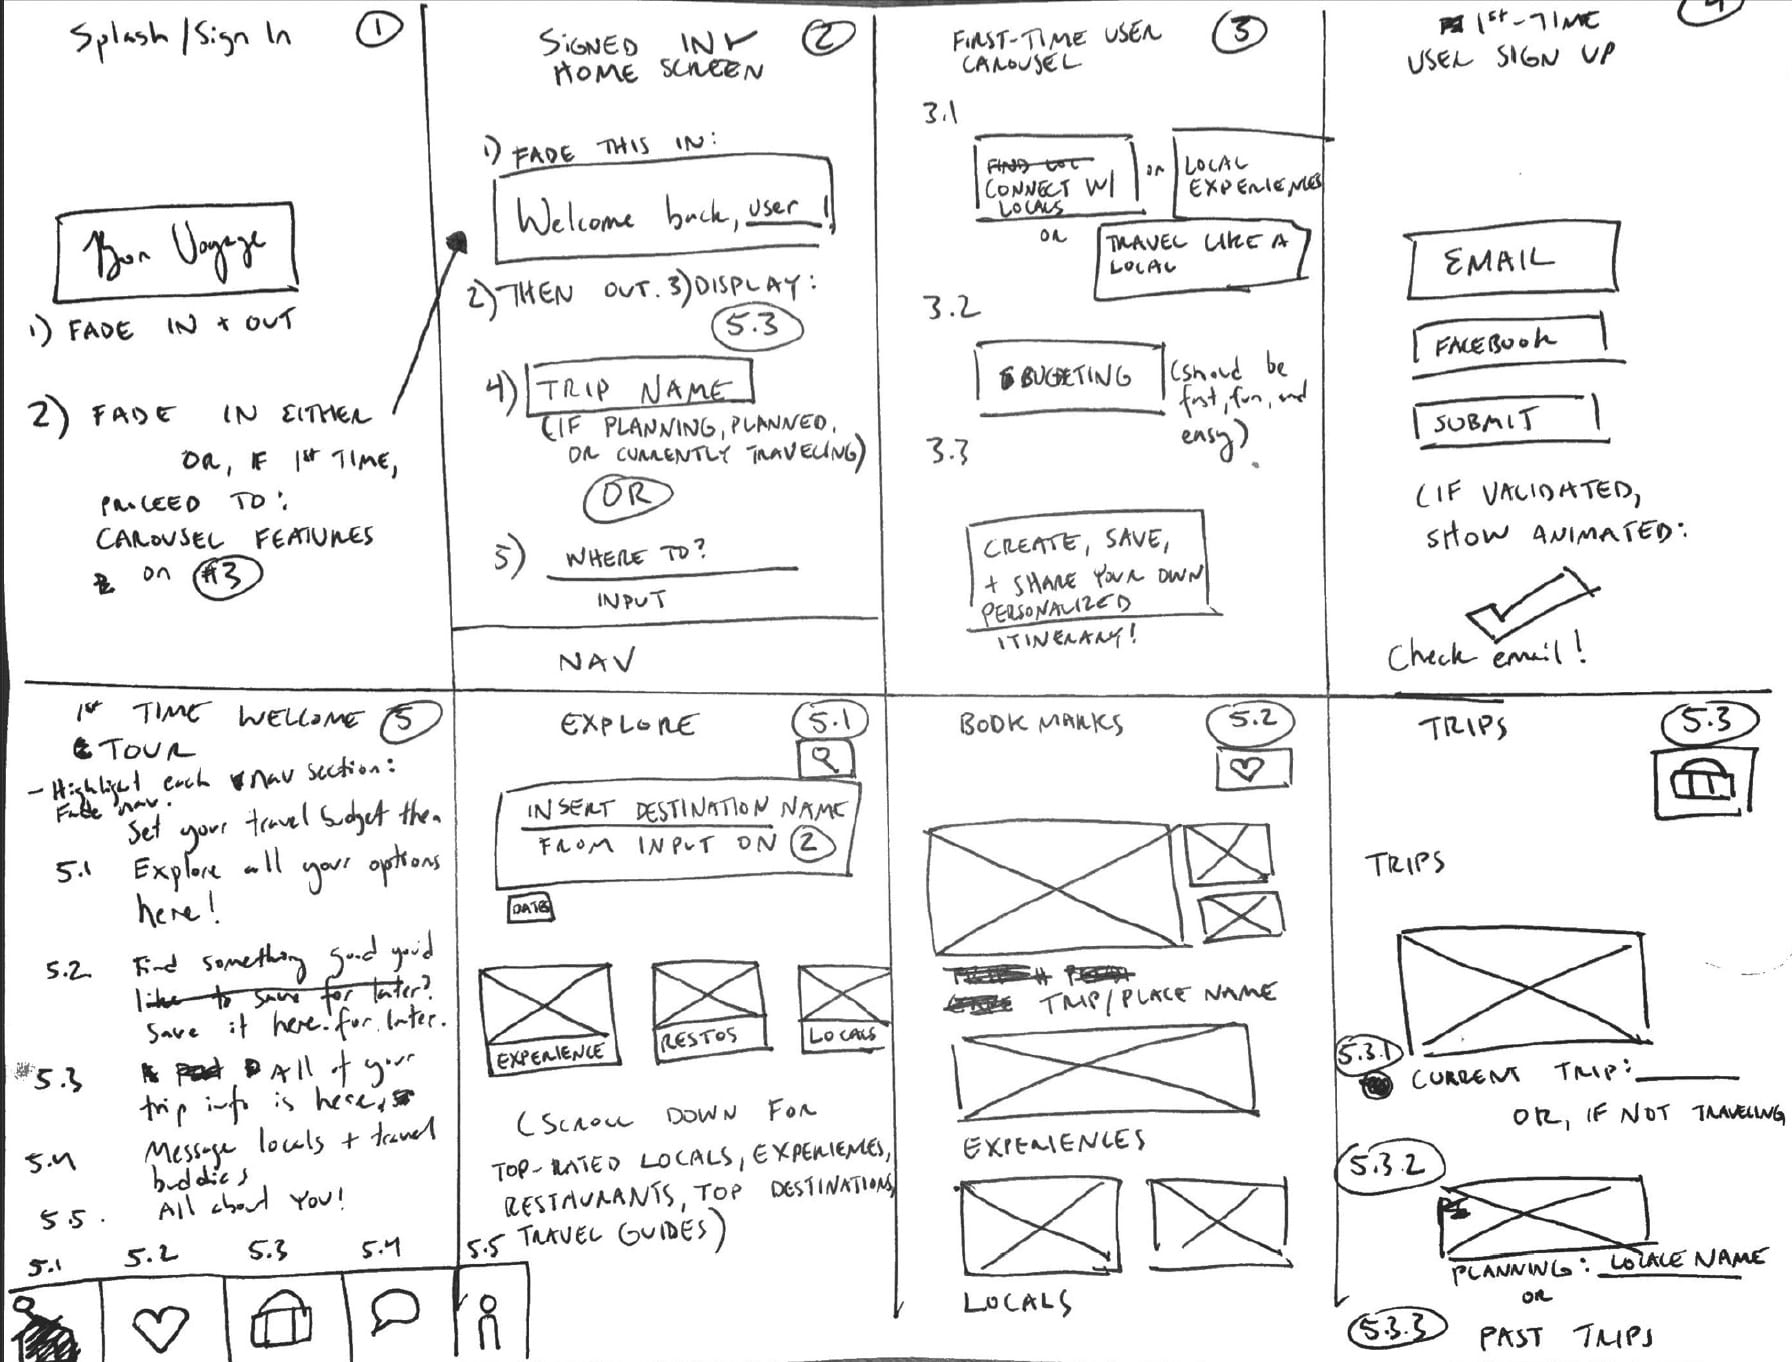 Splash/Sign In ①
Bon Voyage
1) FADE IN + OUT
2) FADE IN EITHER
OR, IF 1st TIME,
PROCEED TO:
CAROUSEL FEATURES
on #3
SIGNED IN ②
HOME SCREEN
1) FADE THIS IN:
Welcome back, user!
2) THEN OUT. 3) DISPLAY:
5.3
4) TRIP NAME
(IF PLANNING, PLANNED,
OR CURRENTLY TRAVELING)
OR
5) WHERE TO?
INPUT
NAV
FIRST-TIME USER ③
CAROUSEL
3.1
FIND LOC
CONNECT W/
LOCALS
OR
LOCAL
EXPERIENCES
OR
TRAVEL LIKE A
LOCAL
3.2
BUGETING
(should be
fast, fun, and
easy).
3.3
CREATE, SAVE,
+ SHARE YOUR OWN
PERSONALIZED
ITINERARY!
1st-TIME 4
USER SIGN UP
EMAIL
FACEBOOK
SUBMIT
(IF VALIDATED,
SHOW ANIMATED:
Check email!
1st TIME WELCOME ⑤
TOUR
- Highlight each nav section:
Fade nav.
Set your travel budget then
5.1 Explore all your options
here!
5.2 Find something good you'd
like to save for later?
Save it here for later.
5.3 All of your
trip info is here.
5.4 Message locals + travel
buddies
5.5. All about YOU!
5.1 5.2 5.3 5.4 5.5
EXPLORE 5.1
INSERT DESTINATION NAME
FROM INPUT ON ②
DATES
EXPERIENCE
RESTOS
LOCALS
(SCROLL DOWN FOR
TOP-RATED LOCALS, EXPERIENCES,
RESTAURANTS, TOP DESTINATIONS,
TRAVEL GUIDES)
BOOKMARKS 5.2
TRIP/PLACE NAME
EXPERIENCES
LOCALS
TRIPS 5.3
TRIPS
5.3.1
CURRENT TRIP:
OR, IF NOT TRAVELING
5.3.2
PLANNING: LOCALE NAME
OR
5.3.3 PAST TRIPS